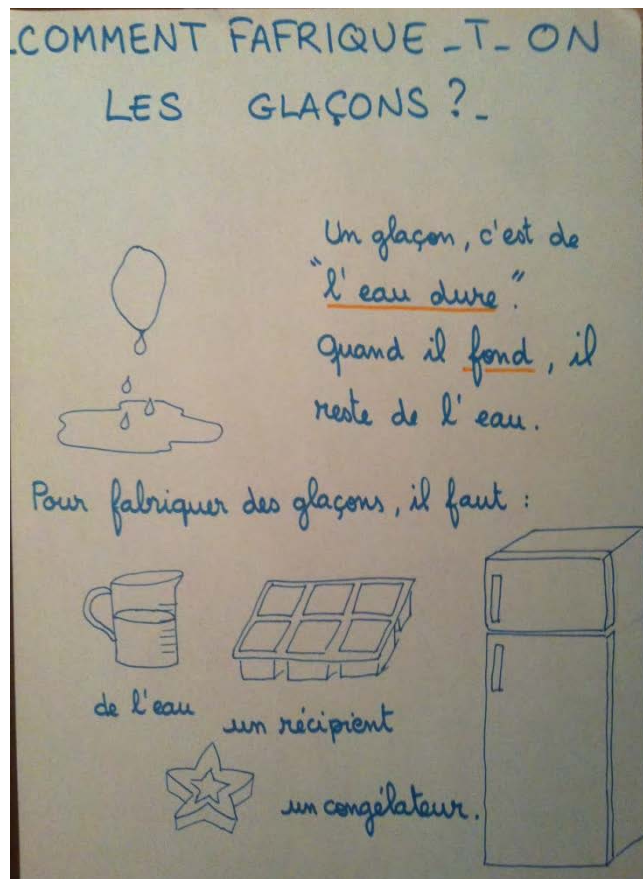 _COMMENT FAFRIQUE_T_ON
LES GLAÇONS ?_
Un glaçon, c'est de
"l'eau dure".
Quand il fond, il
reste de l'eau.
Pour fabriquer des glaçons, il faut :
de l'eau
un récipient
un congélateur.